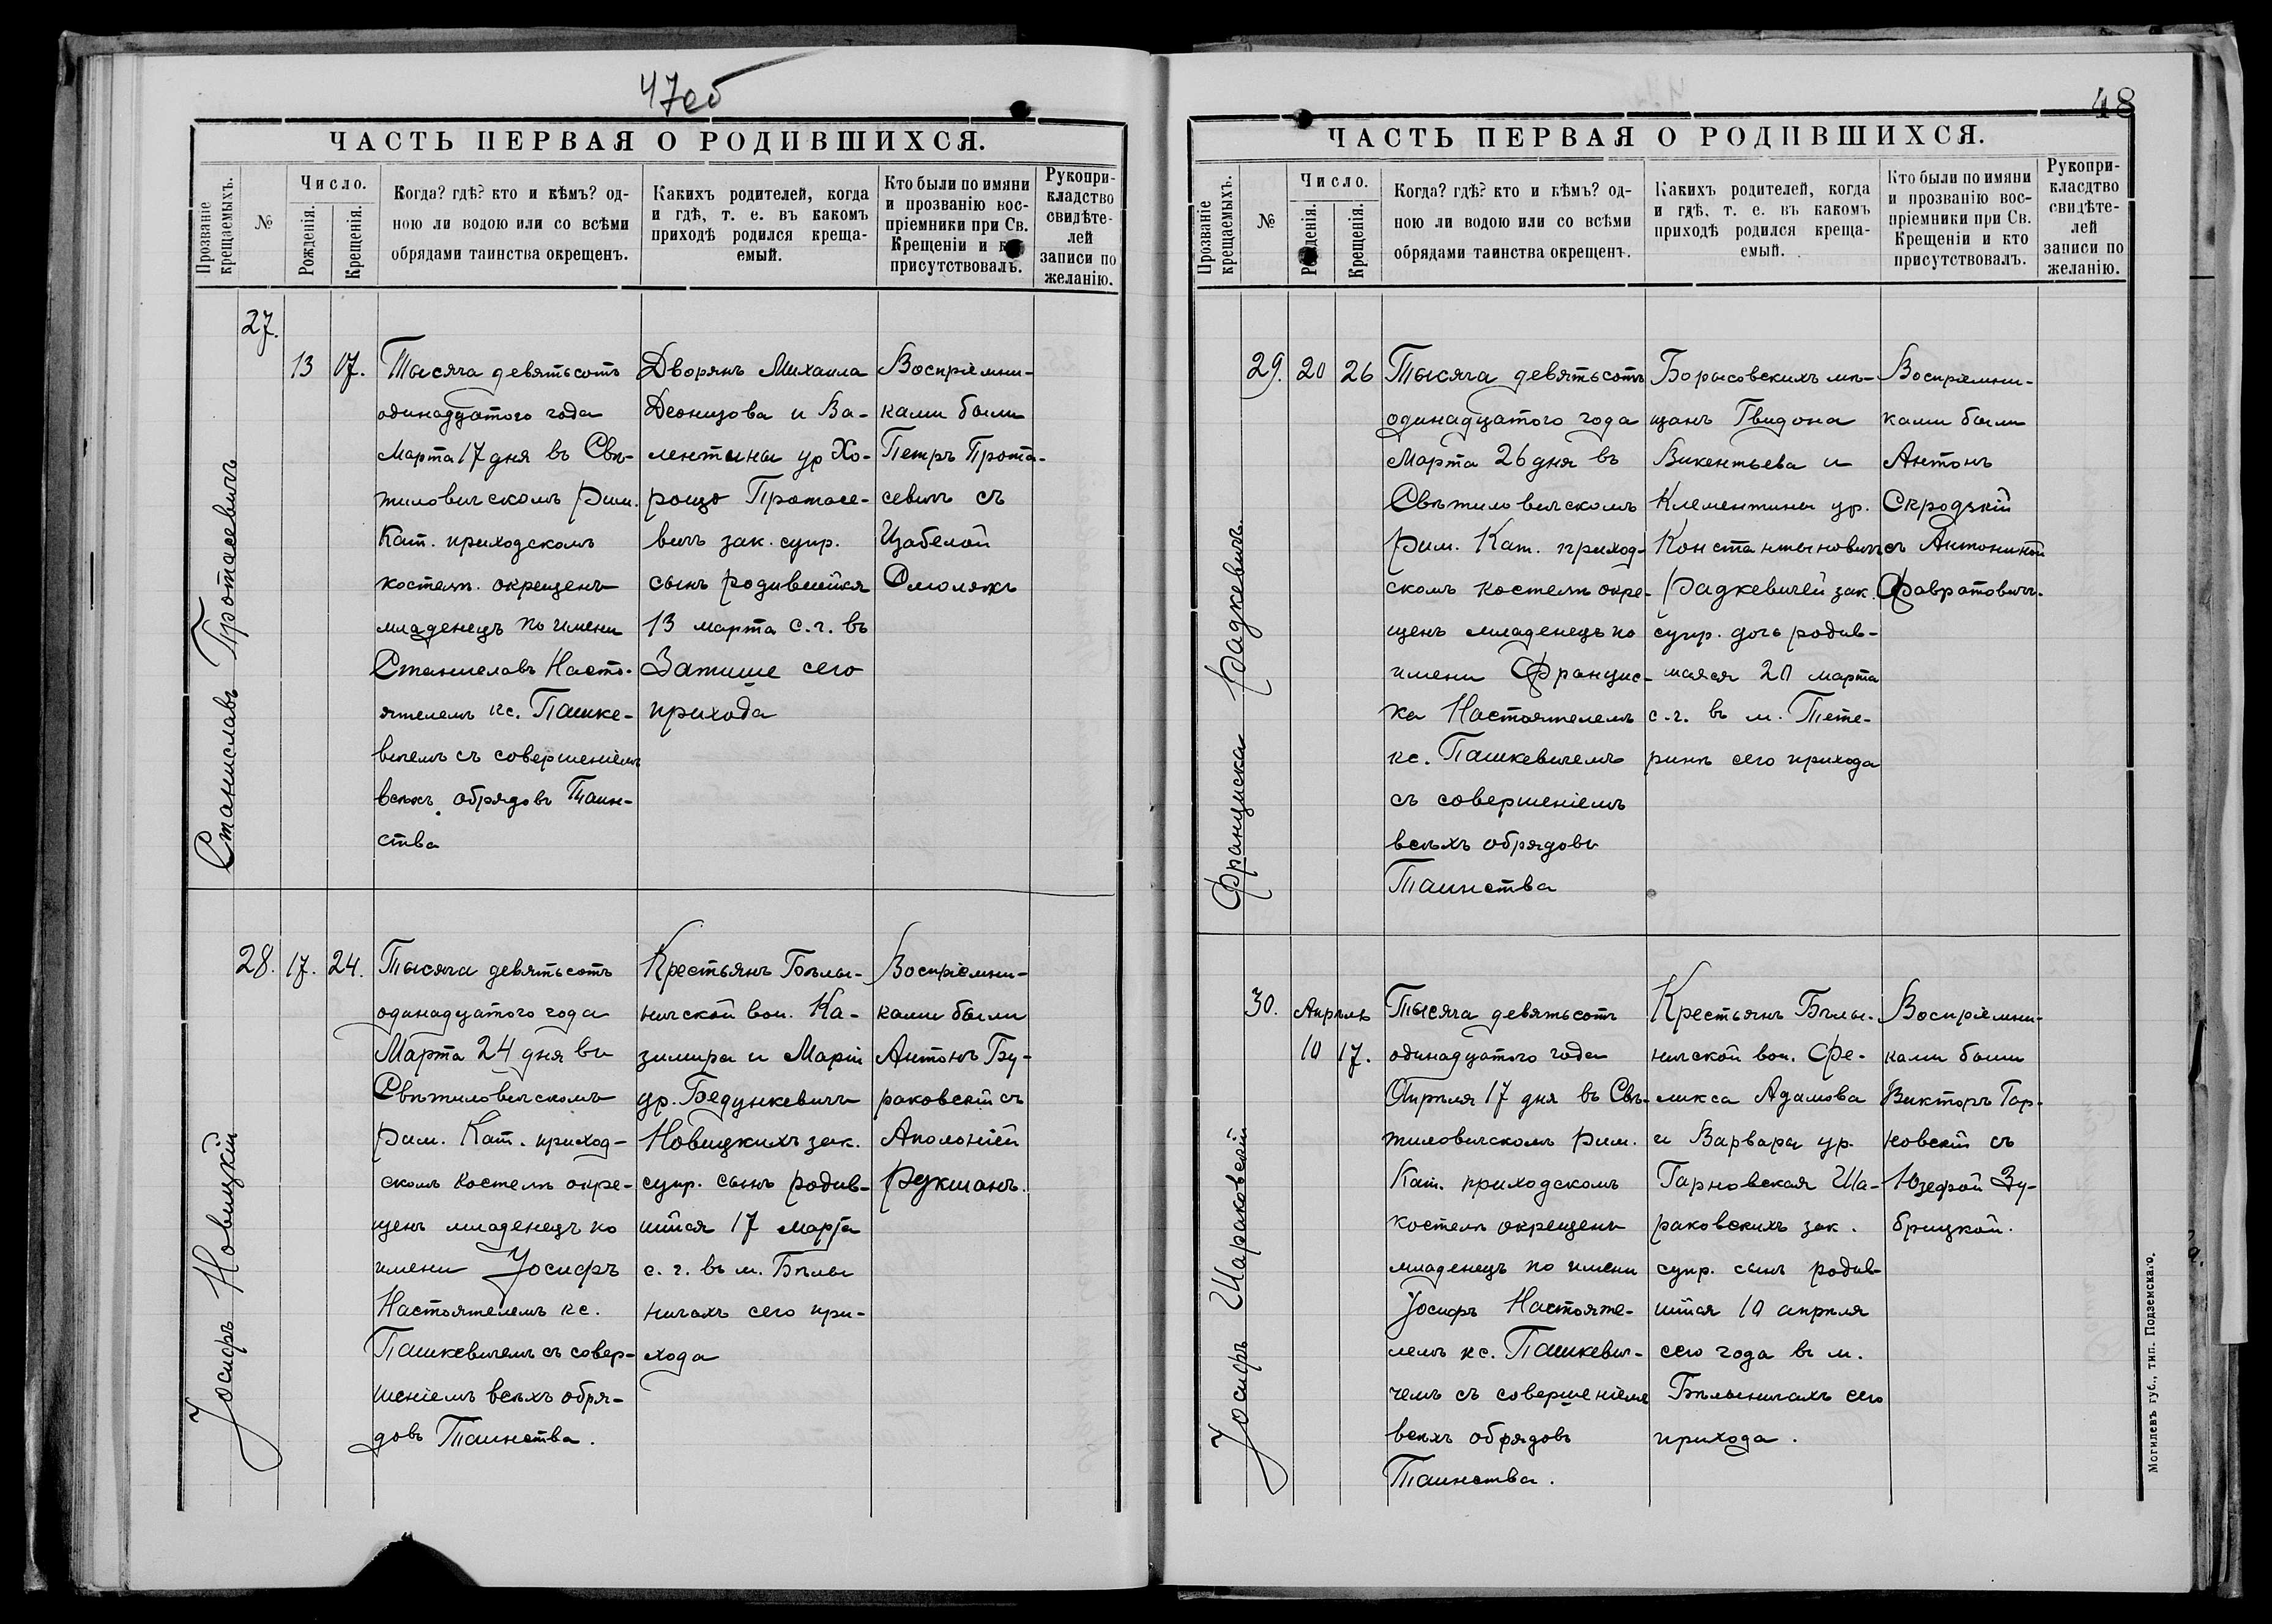 47об
ЧАСТЬ ПЕРВАЯ О РОДИВШИХСЯ.
Прозваніе крещаемыхъ.
№
Число.
Рожденія.
Крещенія.
Когда? гдѣ? кто и кѣмъ? од-
ною ли водою или со всѣми
обрядами таинства окрещенъ.
Какихъ родителей, когда
и гдѣ, т. е. въ какомъ
приходѣ родился креща-
емый.
Кто были по имяни
и прозванію вос-
пріемники при Св.
Крещеніи и
присутствовалъ.
Рукопри-
кладство
свидѣте-
лей
записи по
желанію.
Станиславъ Протасевичъ
27.
13
17.
Тысяча девятьсотъ
одинадцатого года
Марта 17 дня въ Свѣ-
тиловичскомъ Рим.
Кат. приходскомъ
костелѣ окрещенъ
младенецъ по имени
Станиславъ Насто-
ятелемъ кс. Пашке-
вичемъ съ совершеніемъ
всѣхъ обрядовъ Таин-
ства
Дворянъ Михаила
Деонизова и Ва-
лентины ур Хо-
рощо Протасе-
вичъ зак. супр.
сынъ родившійся
13 марта с. г. въ
Затише сего
прихода
Воспріемни-
ками были
Петръ Прота-
севичъ съ
Изабелой
Смолякъ
Іосифъ Новицкій
28.
17.
24.
Тысяча девятьсотъ
одинадцатого года
Марта 24 дня въ
Свѣтиловичскомъ
Рим. Кат. приход-
скомъ костелѣ окре-
щенъ младенецъ по
имени Іосифъ
Настоятелемъ кс.
Пашкевичемъ съ совер-
шеніемъ всѣхъ обря-
довъ Таинства.
Крестьянъ Бѣлы-
ничской вол. Ка-
зимира и Маріи
ур. Бедункевичъ
Новицкихъ зак.
супр. сынъ родив-
шійся 17 марта
с. г. въ м. Бѣлы
ничахъ сего при-
хода
Воспріемни-
ками были
Антонъ Бу-
раковскій съ
Аполоніей
Рукшанъ.
48
ЧАСТЬ ПЕРВАЯ О РОДИВШИХСЯ.
Прозваніе крещаемыхъ.
№
Число.
Рожденія.
Крещенія.
Когда? гдѣ? кто и кѣмъ? од-
ною ли водою или со всѣми
обрядами таинства окрещенъ.
Какихъ родителей, когда
и гдѣ, т. е. въ какомъ
приходѣ родился креща-
емый.
Кто были по имяни
и прозванію вос-
пріемники при Св.
Крещеніи и кто
присутствовалъ.
Рукопри-
класдтво
свидѣте-
лей
записи по
желанію.
Франциска Радкевичъ.
29.
20
26
Тысяча девятьсотъ
одинадцатого года
Марта 26 дня въ
Свѣтиловичскомъ
Рим. Кат. приход-
скомъ костелѣ окре-
щенъ младенецъ по
имени Францис-
ка Настоятелемъ
кс. Пашкевичемъ
съ совершеніемъ
всѣхъ обрядовъ
Таинства
Борысовскихъ мѣ-
щанъ Гвидона
Викентьева и
Клементины ур.
Константыновичъ
Радкевичей зак.
супр. дочь родив-
шаяся 20 марта
с. г. въ м. Тете-
ринѣ сего прихода
Воспріемни-
ками были
Антонъ
Скродзкій
съ Антониной
Фавратовичъ.
Іосифъ Шараковскій
30.
Апрѣль
10
17.
Тысяча девятьсотъ
одинадцатого года
Апрѣля 17 дня въ Свѣ-
тиловичскомъ Рим.
Кат. приходскомъ
костелѣ окрещенъ
младенецъ по имени
Іосифъ Настояте-
лемъ кс. Пашкевич-
чемъ съ совершеніемъ
всѣхъ обрядовъ
Таинства.
Крестьянъ Бѣлы-
ничской вол. Фе-
ликса Адамова
и Варвары ур.
Тарновская Ша-
раковскихъ зак.
супр. сынъ родив
шійся 10 апрѣля
сего года въ м.
Бѣлыничахъ сего
прихода.
Воспріемни-
ками были
Викторъ Тар-
новскій съ
Юзефой Зу-
брицкой.
Могилевъ губ., тип. Подземскаго.